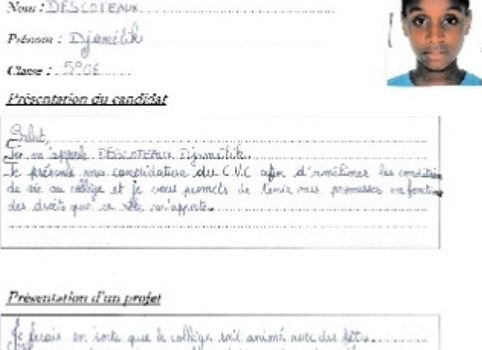 Nom : DESCOTEAUX
Prénom : Djamélik
Classe : 5°
Présentation du candidat
Salut,
Je m'appelle DESCOTEAUX Djamélik.
Je présente ma candidature du C.V.C afin d'améliorer les condition
de vie au collège et je vous promets de tenir mes promesses en fonction
des droits que ce rôle m'apporte.
Présentation d'un projet
Je ferais en sorte que le collège soit animé avec des fêtes.